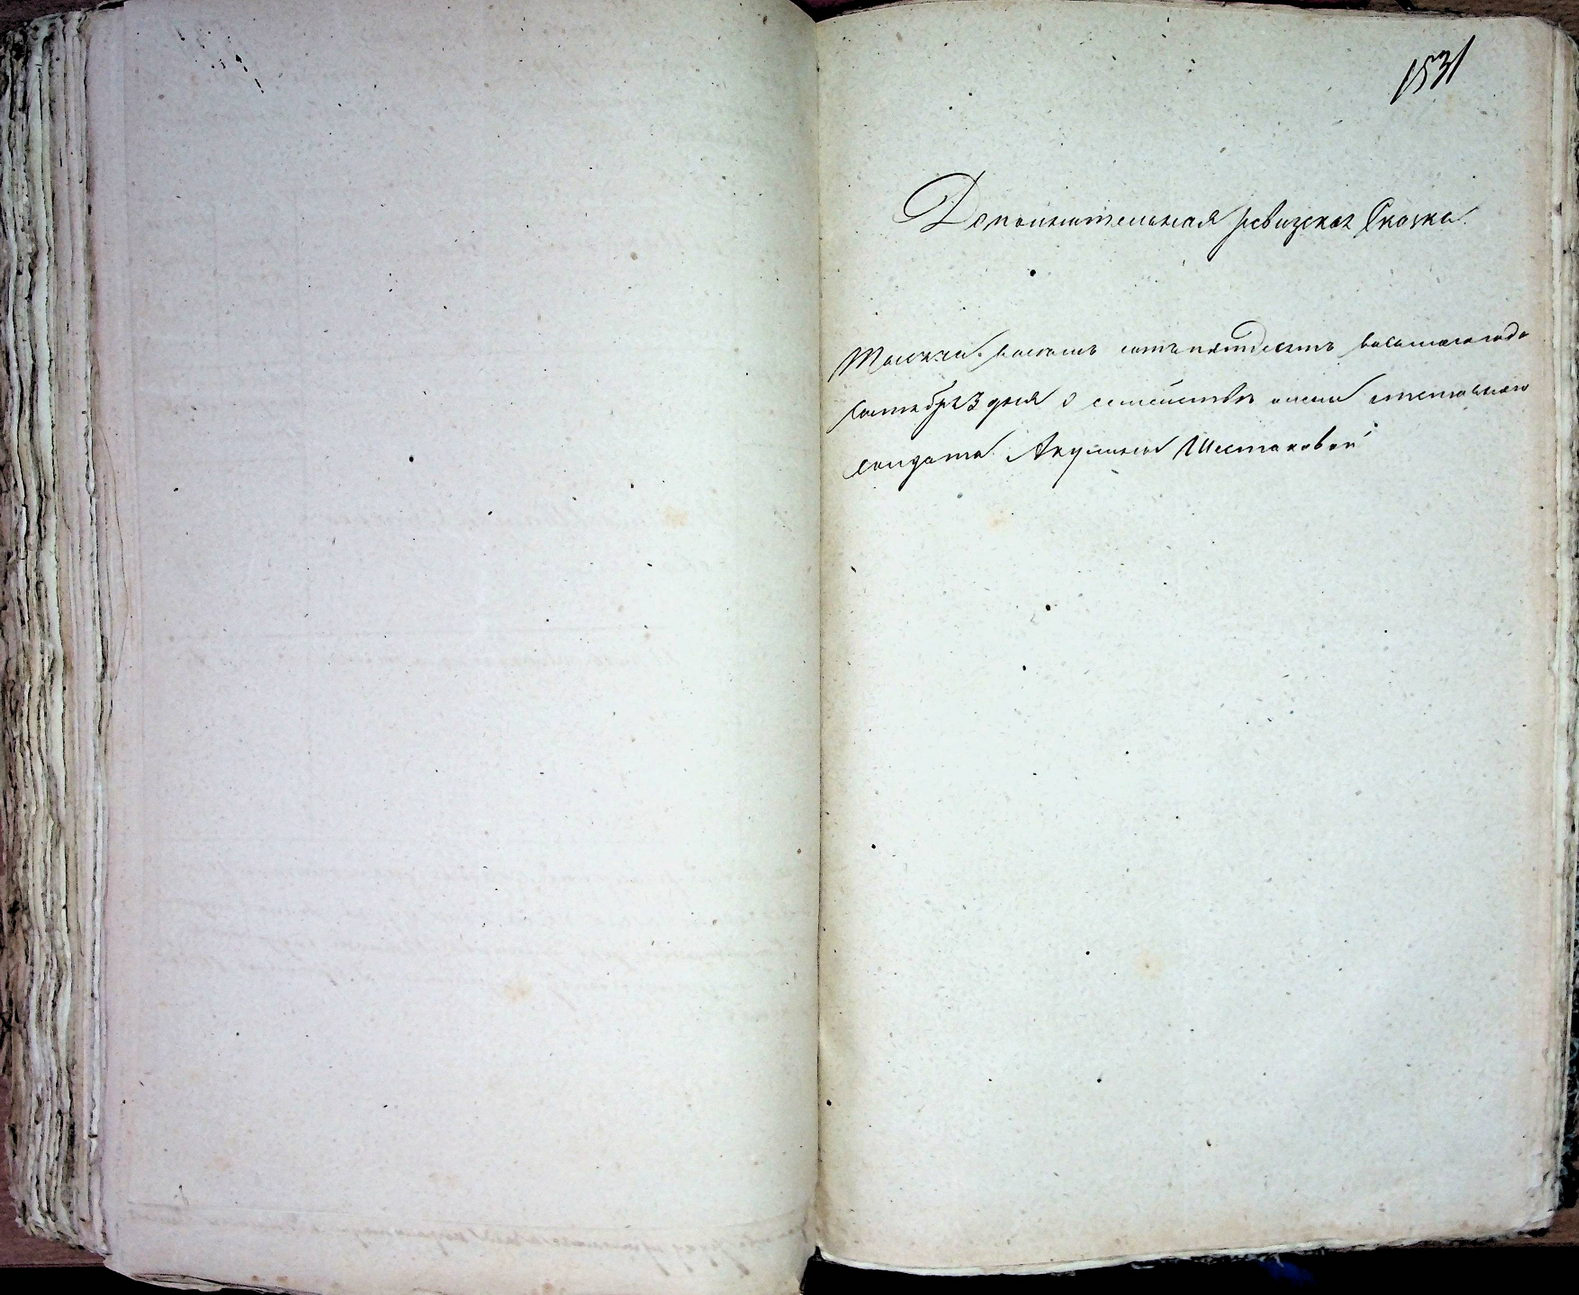 1531
Дополнительная ревизская Сказка.
Тысяча восемь сотъ пятдесятъ восьмого года
Сентября 3 дня о семействе отставного
солдата Акулины Шестаковой